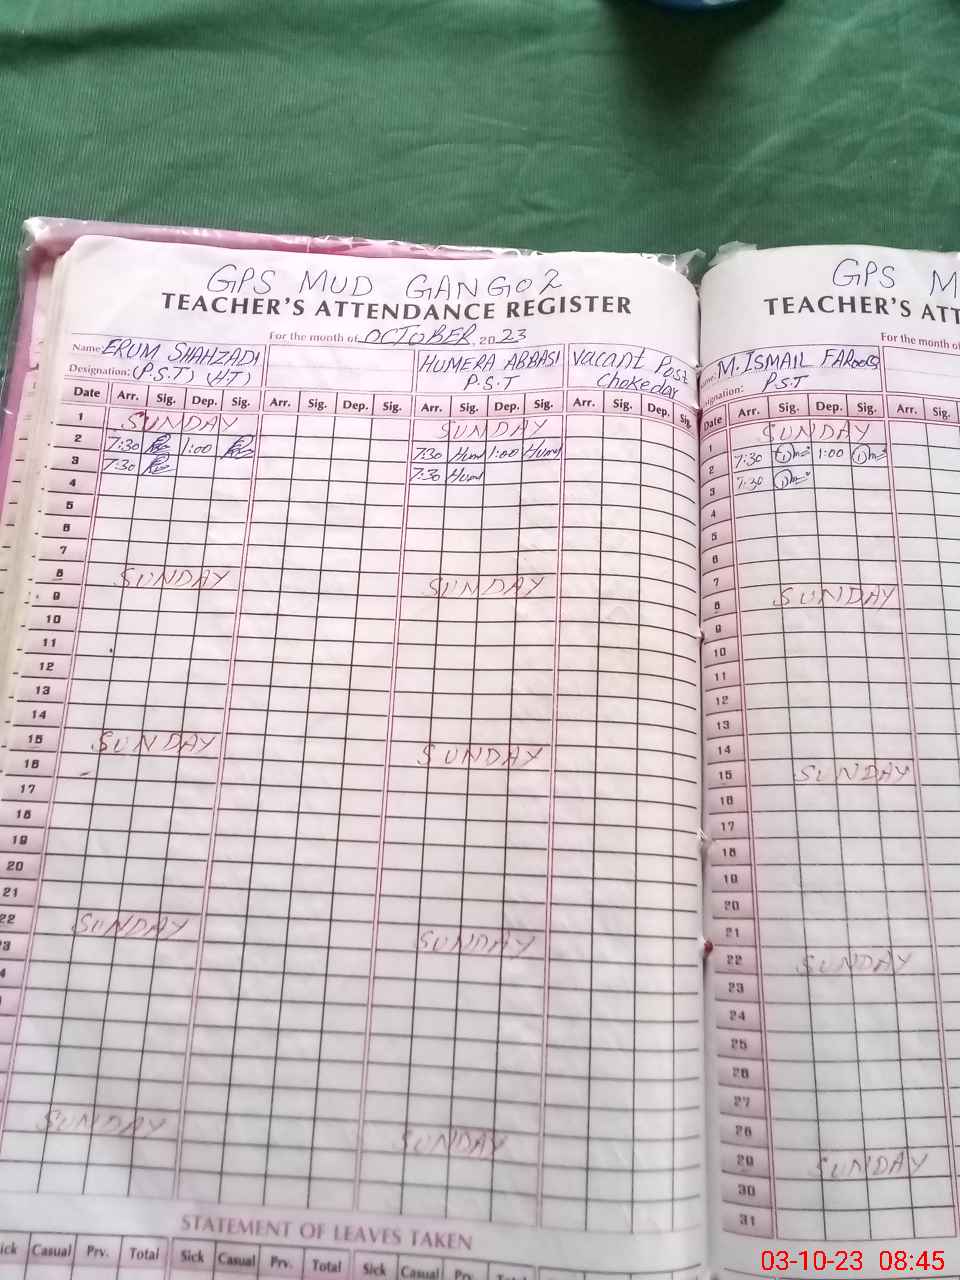 GPS MUD GANGO2
TEACHER'S ATTENDANCE REGISTER
For the month of OCTOBER 2023
Name: ERUM SHAHZADI
Designation: (P.S.T) (H.T)
HUMERA ABBASI
P.S.T
Vacant Post
Chokeday
Date Arr. Sig. Dep. Sig. Arr. Sig. Dep. Sig. Arr. Sig. Dep. Sig. Arr. Sig. Dep. Sig.
1 SUNDAY SUNDAY
2 7:30 1:00 7:30 Hum 1:00 Hum
3 7:30 7:30 Hum
4
5
6
7
8 SUNDAY SUNDAY
9
10
11
12
13
14
15 SUNDAY SUNDAY
16
17
18
19
20
21
22 SUNDAY SUNDAY
3
4
SUNDAY SUNDAY
STATEMENT OF LEAVES TAKEN
ick Casual Prv. Total Sick Casual Prv. Total Sick Casual Prv. Total
GPS M
TEACHER'S ATT
For the month of
M. ISMAIL FAROOQ
signation: P.S.T
Date Arr. Sig. Dep. Sig. Arr. Sig.
1 SUNDAY
2 7:30 1:00
3 7:30
4
5
6
7
8 SUNDAY
9
10
11
12
13
14
15 SUNDAY
16
17
18
19
20
21
22 SUNDAY
23
24
25
26
27
28
29 SUNDAY
30
31
03-10-23 08:45